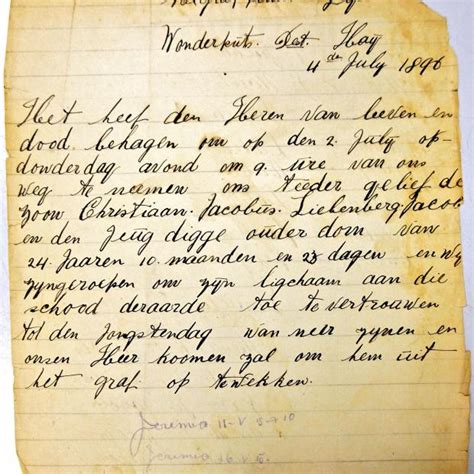 Wonderkuts. Dst. Hay
4 de July 1896
Het heef den Heren van leeven en
dood behagen om op den 2 July op
donderdag avond om 9. ure van ons
weg te neemen ons teeder gelief de
zoon Christiaan. Jacobus. Liebenberg. Jacob
en den Jeug digge ouder dom van
24. Jaaren 10. maanden en 23 dagen en wy
zyngeroepen om zyn ligchaam aan die
schood deraarde toe tevertrouwen
tol den Jongstendag wan neer zynen en
onsen Heer koomen zal om hem uit
het graf op tewekken.
Jeremia 11-V 8-10
Jeremia V 6.